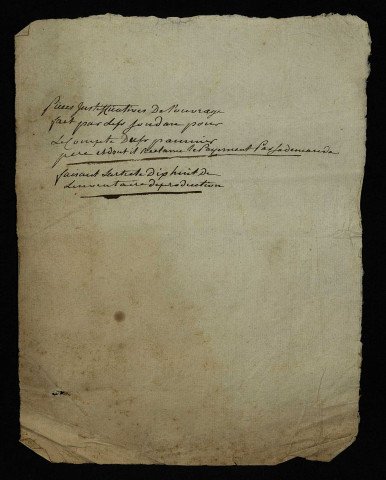 Pieces Justificatives De l'ouvrage
fait par le sr Jordan pour
Le Compte Du sr pannier
pere et dont il Reclame le Payement Par sa demande
faisant L'article Dixhuit de
L'inventaire de production